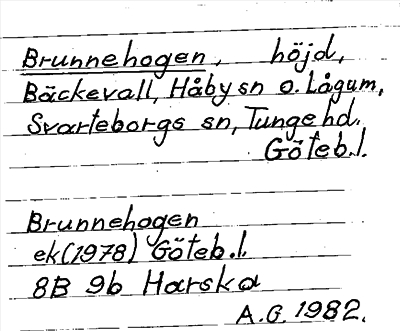 Brunnehogen, höjd,
Bäckevall, Håby sn o. Lågum,
Svarteborgs sn, Tunge hd.
Göteb.l.
Brunnehogen
ek (1978) Göteb.l.
8B 9b Harska
A.G. 1982.